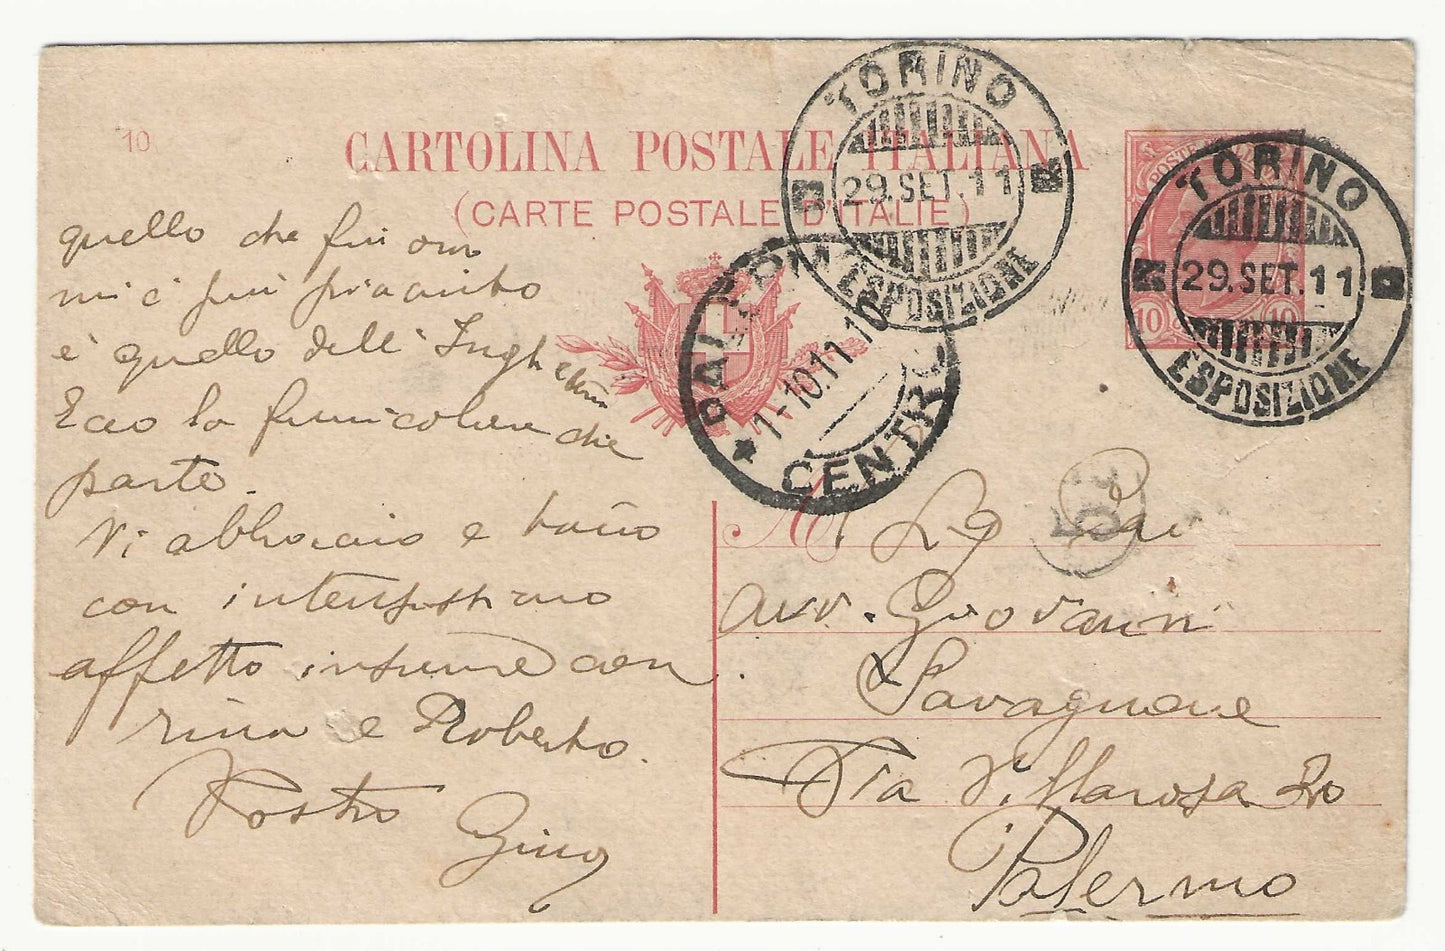 10
CARTOLINA POSTALE ITALIANA
(CARTE POSTALE D'ITALIE)
TORINO
29.SET.11
ESPOSIZIONE
TORINO
29.SET.11
ESPOSIZIONE
POSTE
10 10
PALERMO
1-10.11.10
CENTRO
quello che fin ora
mi è più piaciuto
è quello dell'Inghilterra
Ecco la funicolare che
parte.
Vi abbraccio e bacio
con intensissimo
affetto insieme con
Rina e Roberto.
Vostro
Gino
A
avv. Giovanni
Savagnone
Via Villarosa 20
Palermo